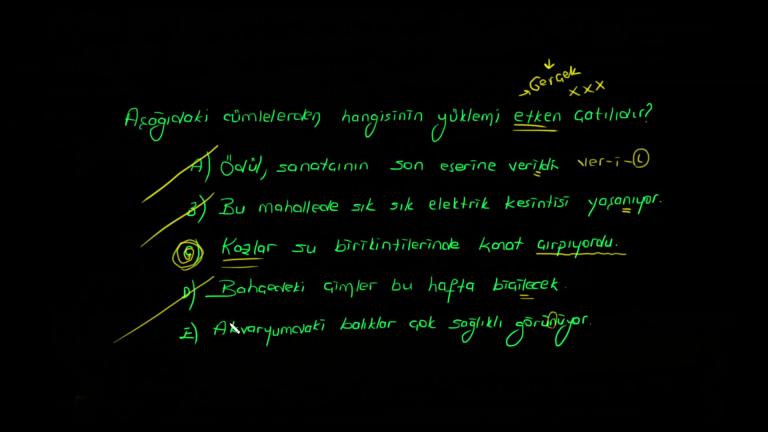 Gerçek
xxx
Aşağıdaki cümlelerden hangisinin yüklemi etken çatılıdır?
A) Ödül, sanatçının son eserine verildi. ver-i-l
B) Bu mahallede sık sık elektrik kesintisi yaşanıyor.
C) Kazlar su birikintilerinde kanat çırpıyordu.
D) Bahçedeki çimler bu hafta biçilecek.
E) Akvaryumdaki balıklar çok sağlıklı görünüyor.